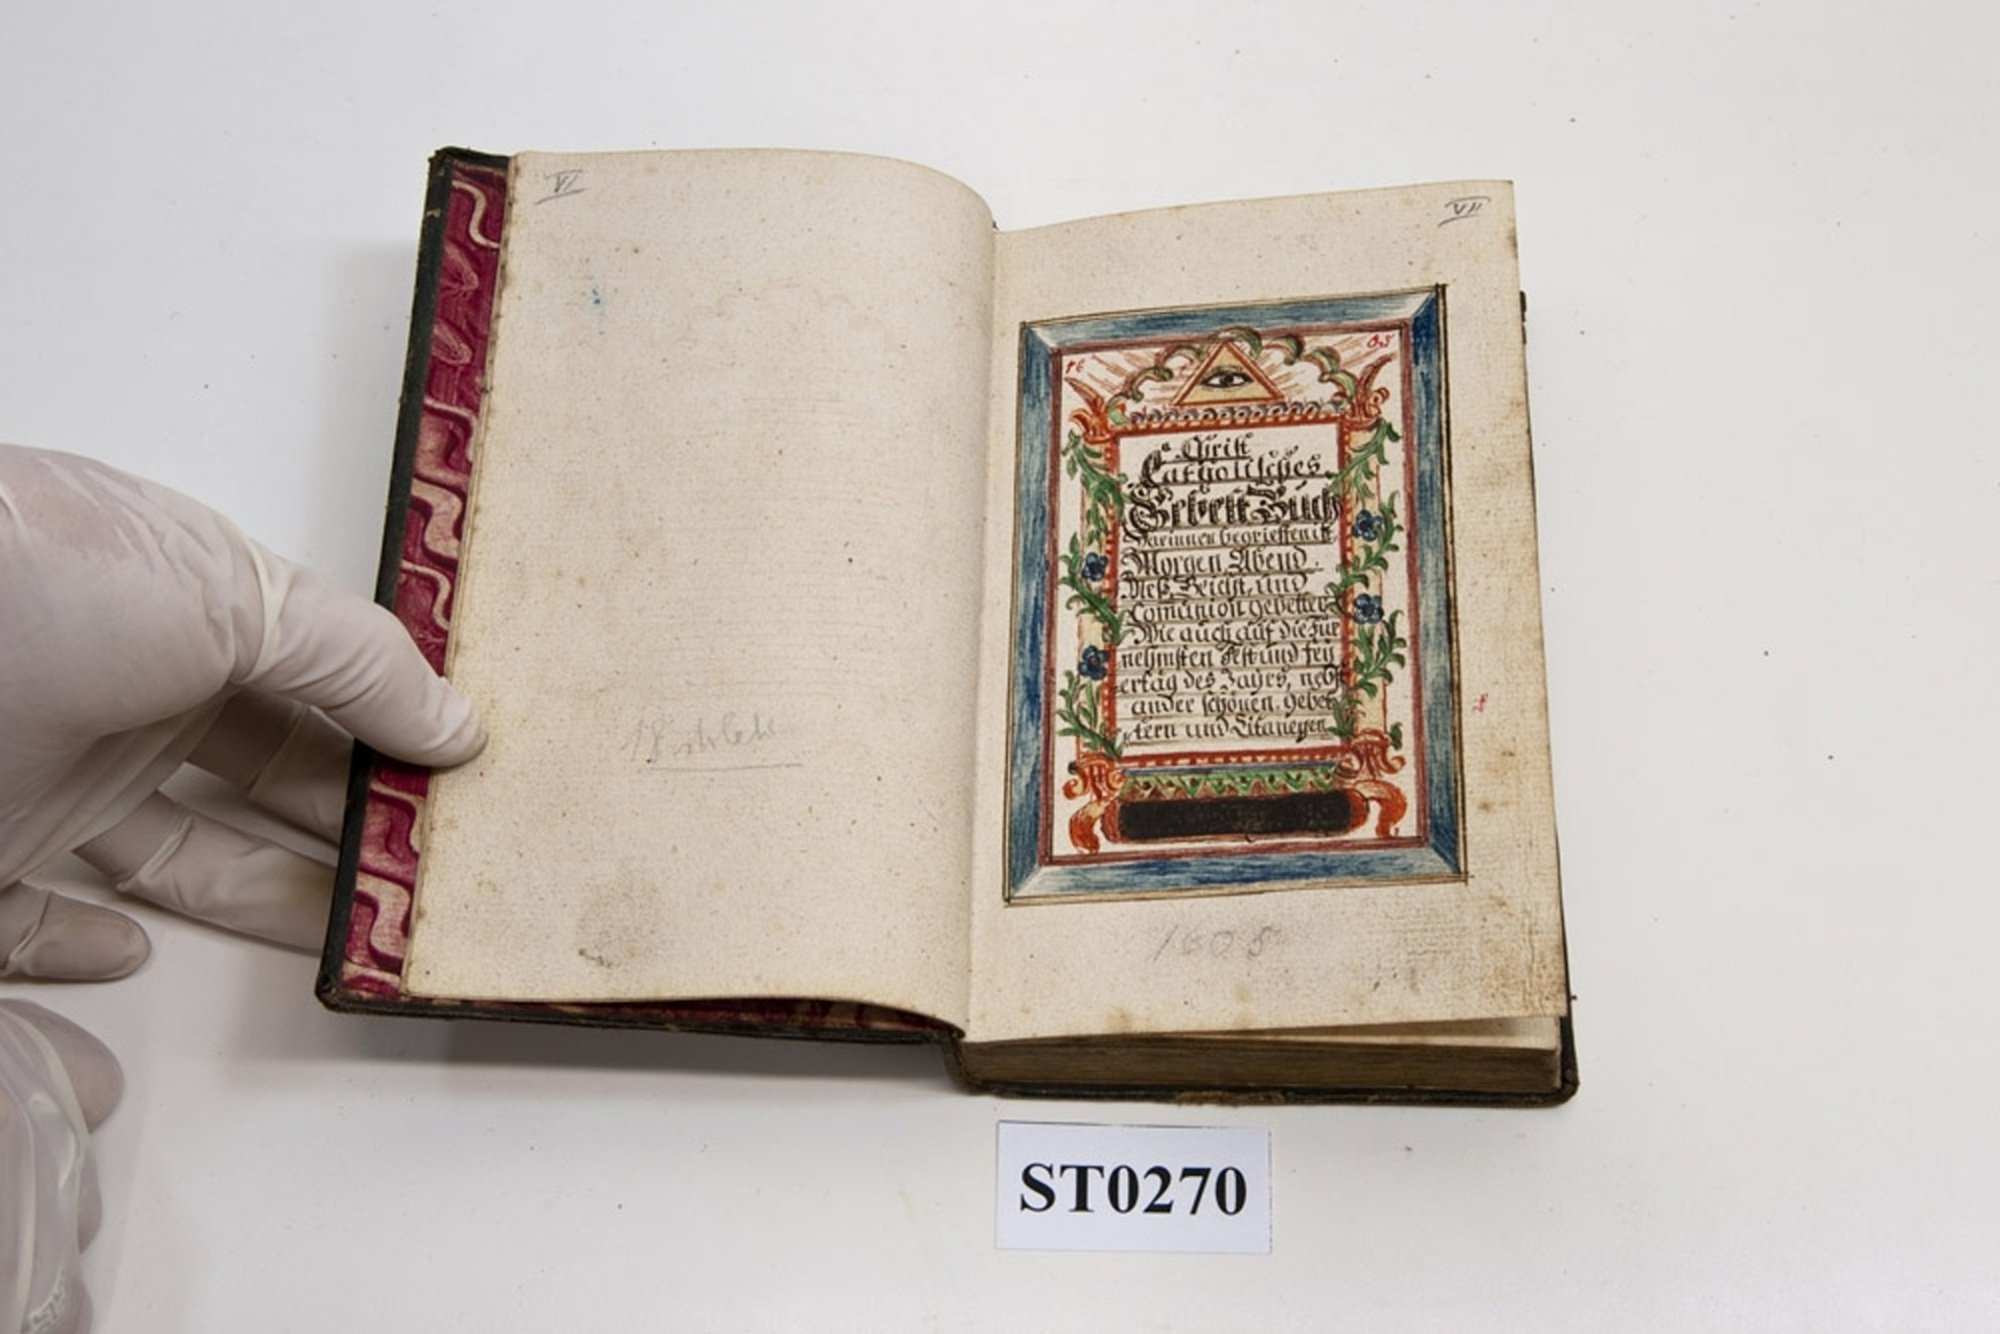 VI
VII
16 05
Christ
Catholisches
Gebett Buch
Darinnen begrieffen ist
Morgen Abend.
Meß, Beicht, und
Comunion gebetter
Wie auch auf die für
nehmsten Fest und fey
ertäg des Jahrs, nebst
ander schönen gebet
tern und Litaneyen
1605
ST0270